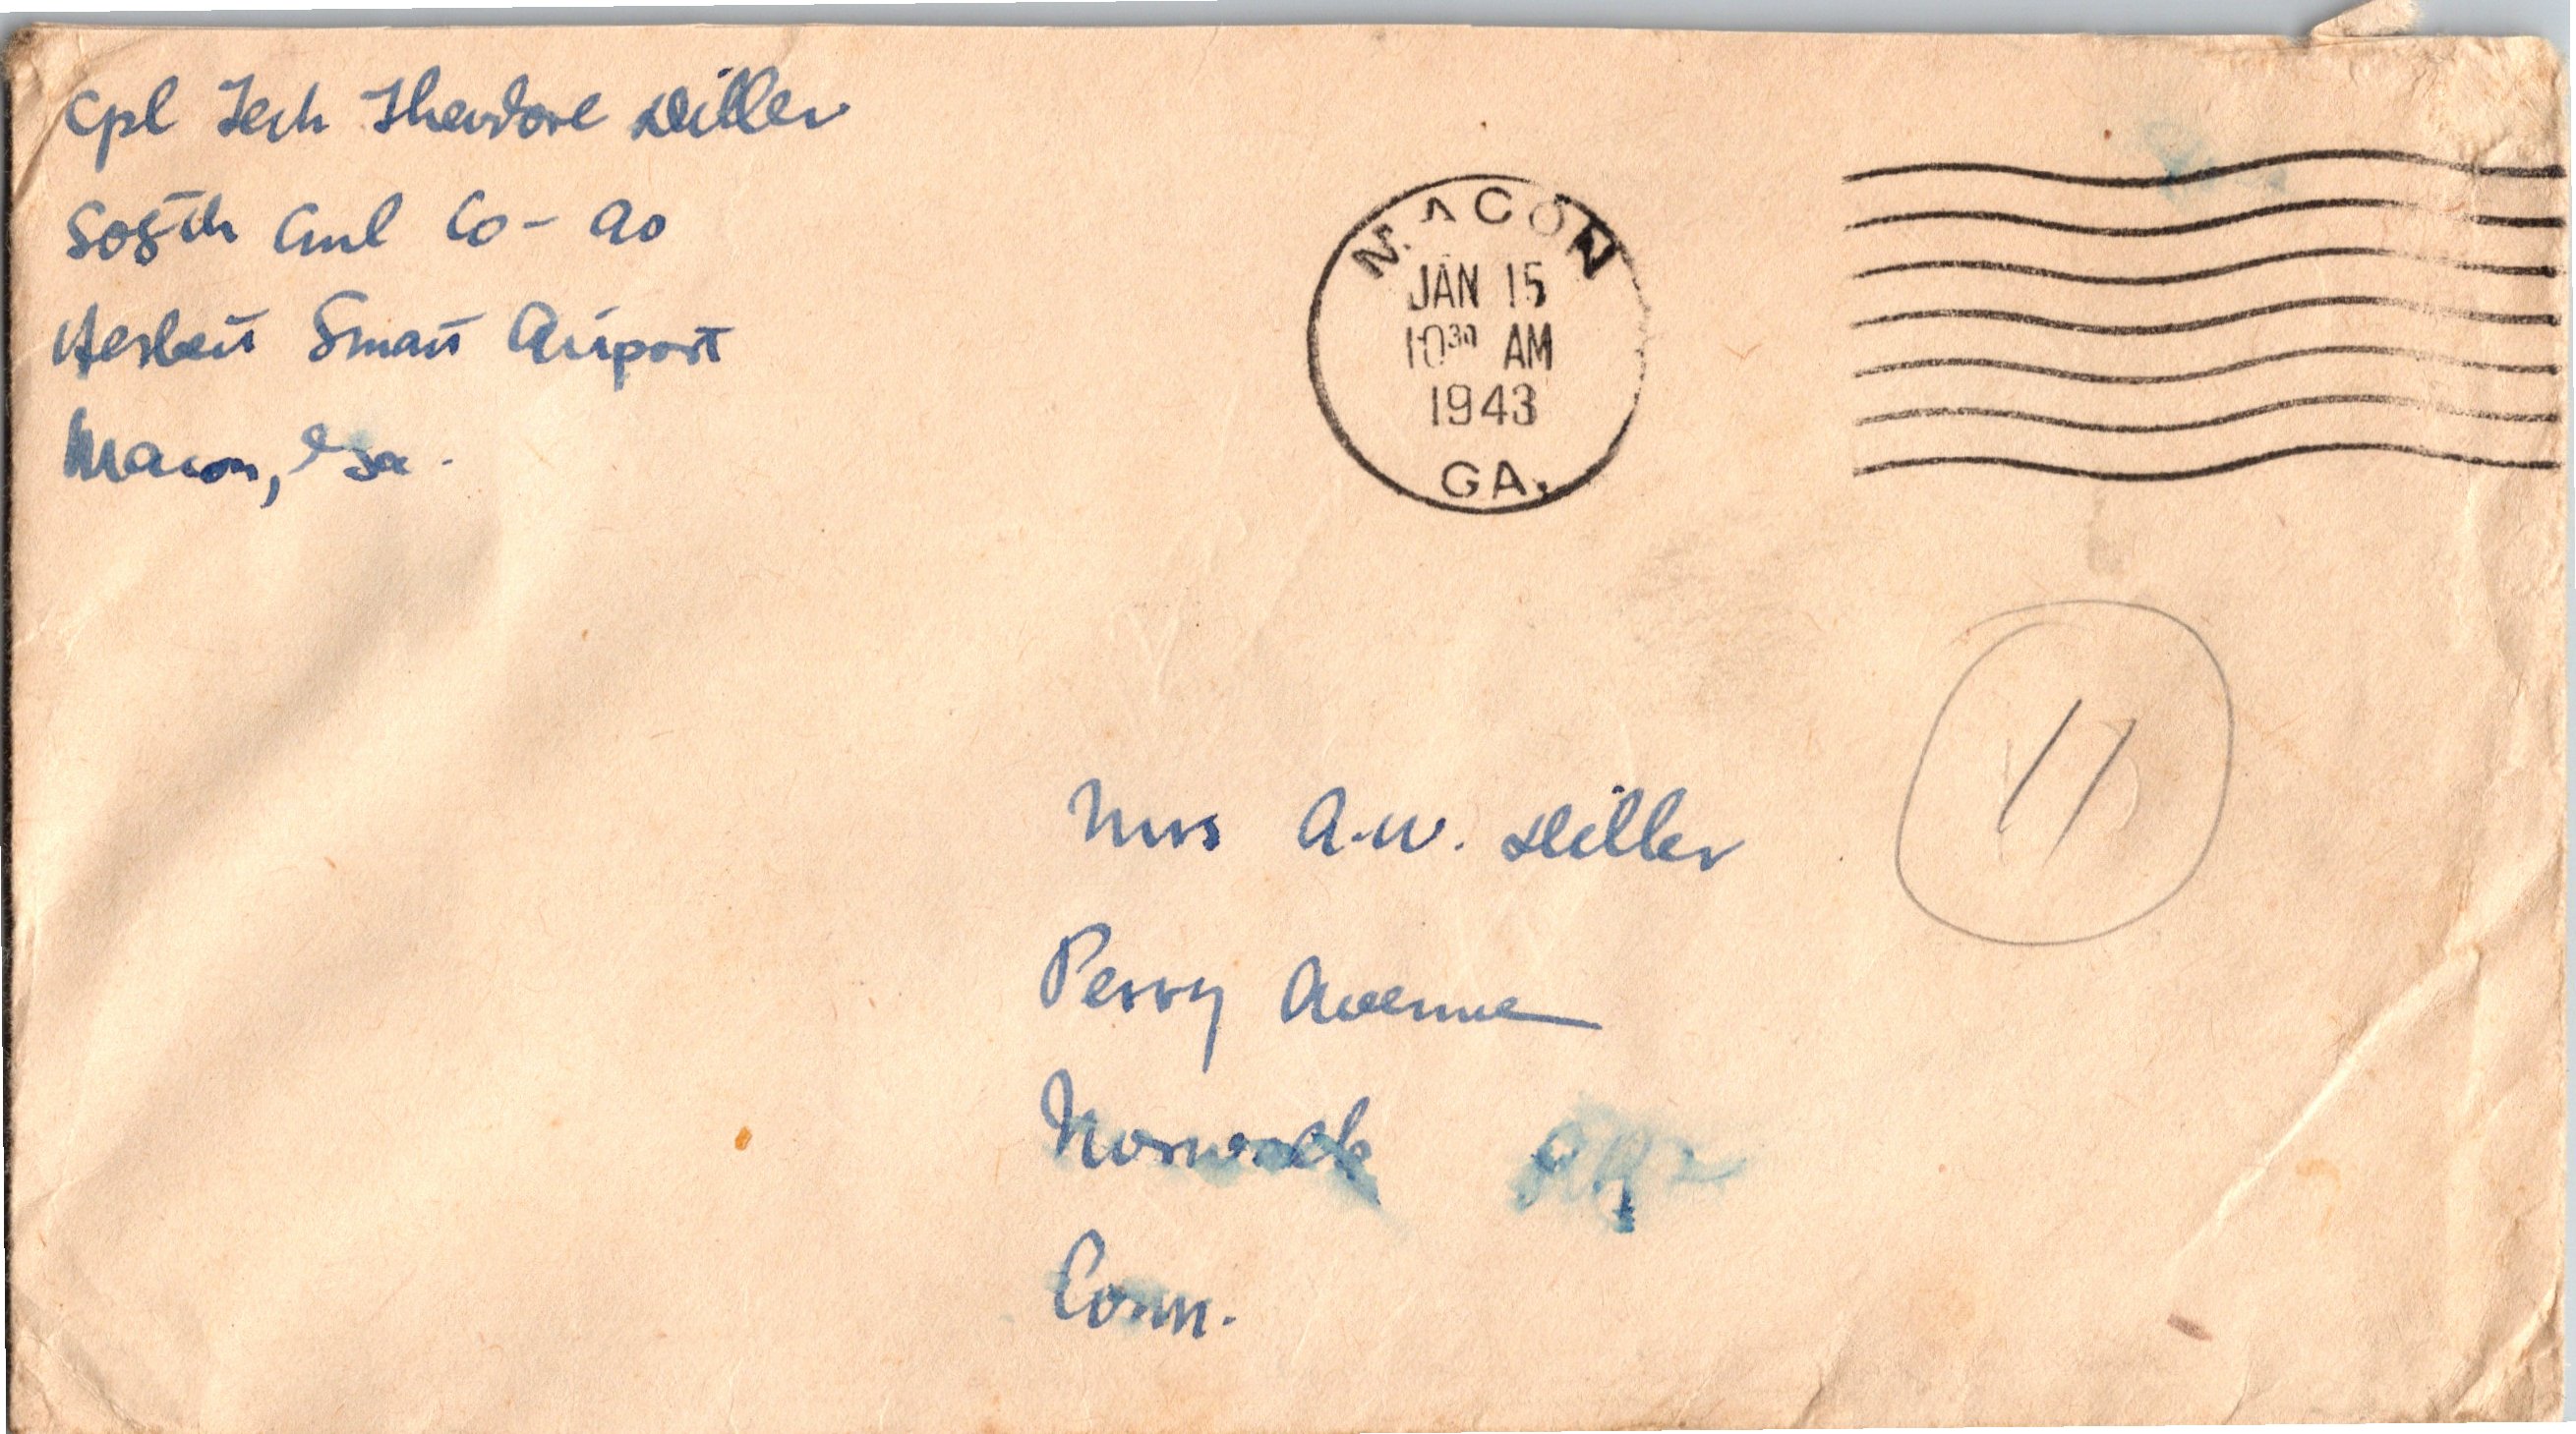 Cpl Tech Theodore Diller
505th Aml Co - ao
Herbert Smart Airport
Macon, Ga.
MACON
JAN 15
10 30 AM
1943
GA.
11
Mrs A.W. Diller
Perry Avenue
Norwalk
Conn.